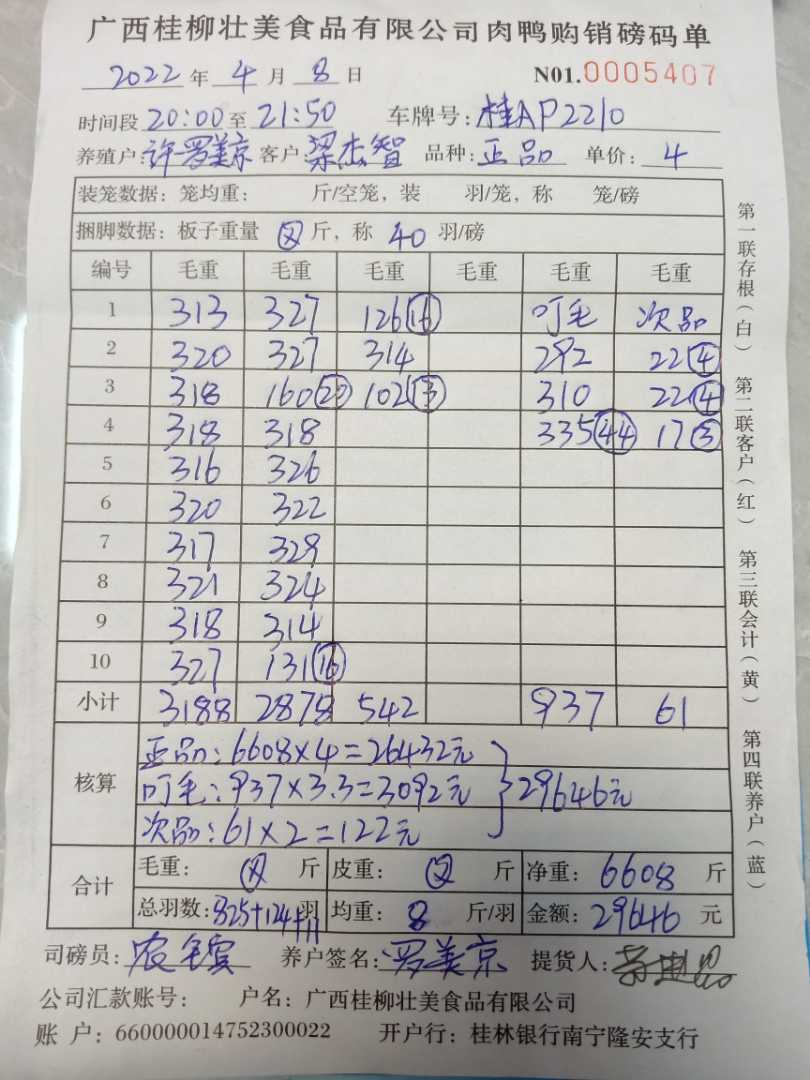 广西桂柳壮美食品有限公司肉鸭购销磅码单
2022 年 4 月 8 日 N01.0005407
时间段 20:00 至 21:50 车牌号: 桂AP2210
养殖户 许罗美京 客户: 梁杰智 品种: 正品 单价: 4
装笼数据: 笼均重: 斤/空笼, 装 羽/笼, 称 笼/磅
捆脚数据: 板子重量 斤, 称 40 羽/磅
编号 毛重 毛重 毛重 毛重 毛重 毛重
1 313 327 126⑯ 叮毛 次品
2 320 327 314 292 22④
3 318 160⑳ 102⑬ 310 22④
4 318 318 335㊹ 17③
5 316 326
6 320 322
7 317 329
8 321 324
9 318 314
10 327 131⑯
小计 3188 2878 542 937 61
核算 正品: 6608×4=26432元
叮毛: 937×3.3=3092元 29646元
次品: 61×2=122元
合计 毛重: 斤 皮重: 斤 净重: 6608 斤
总羽数: 825+124+11 羽 均重: 8 斤/羽 金额: 29646 元
司磅员: 养户签名: 罗美京 提货人:
公司汇款账号: 户名: 广西桂柳壮美食品有限公司
账 户: 660000014752300022 开户行: 桂林银行南宁隆安支行
第一联存根(白) 第二联客户(红) 第三联会计(黄) 第四联养户(蓝)